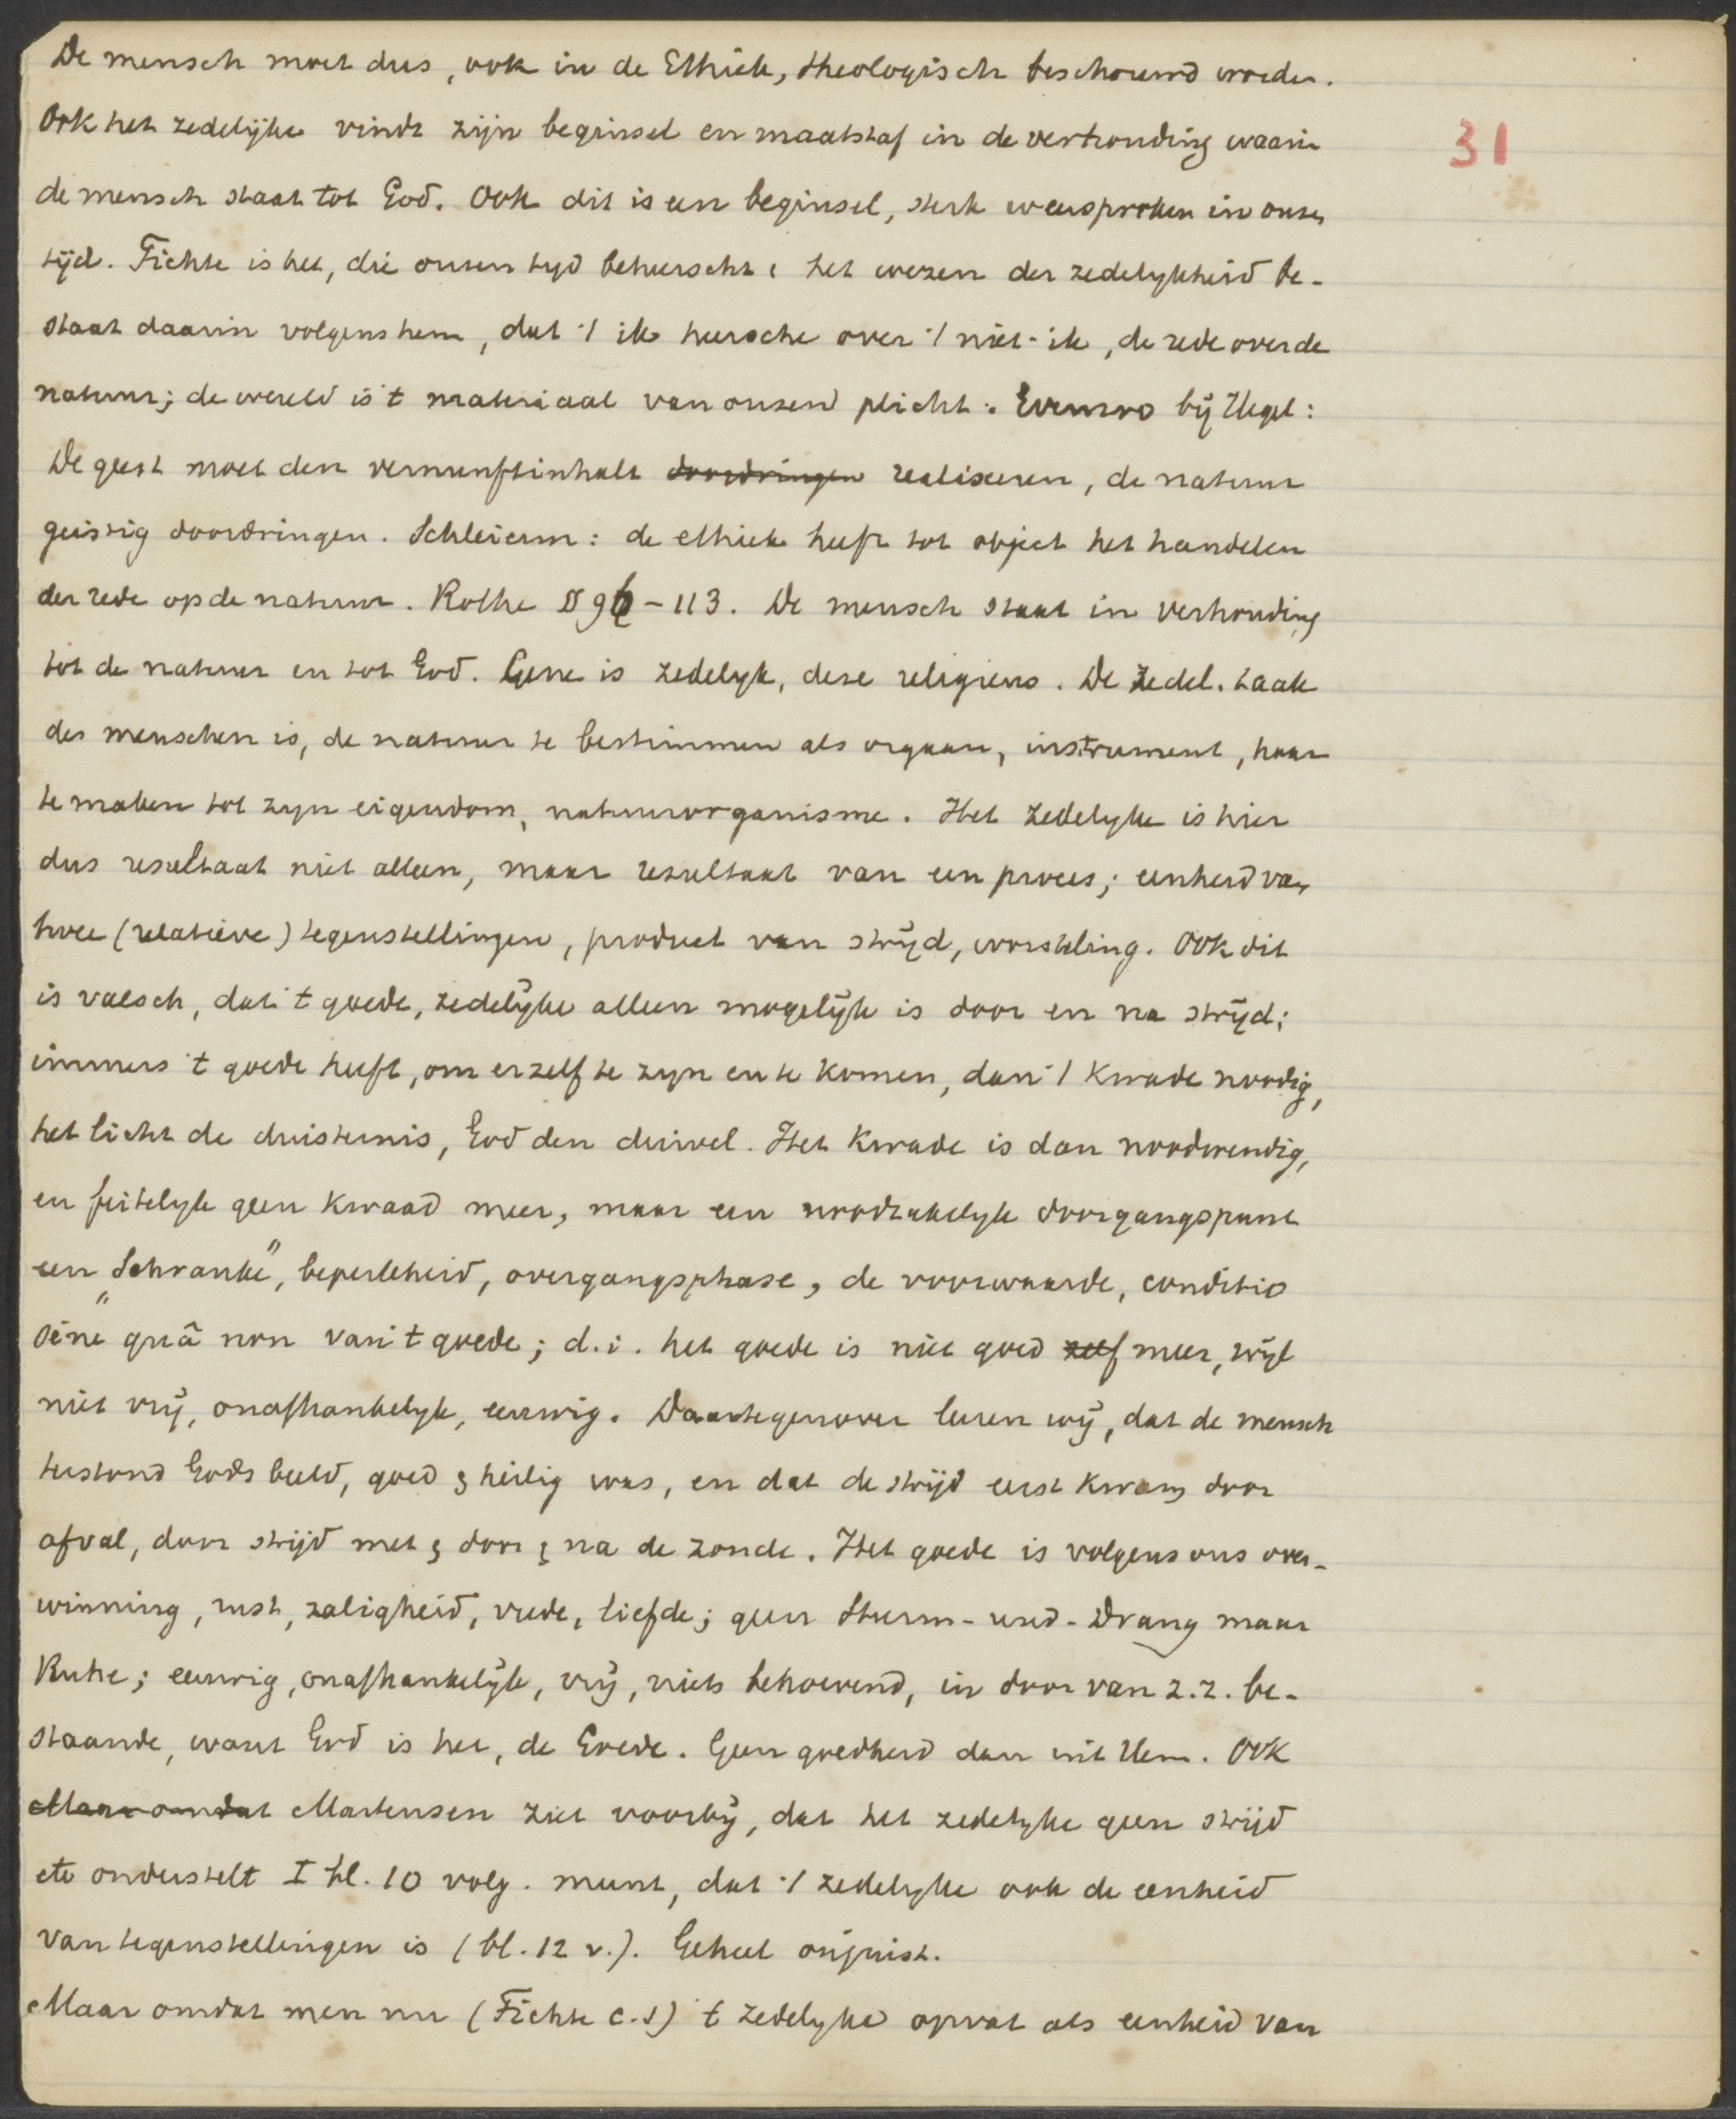 De mensch moet dus, ook in de Ethiek, theologisch beschouwd worden.
31
Ook het zedelijke vindt zijn beginsel en maatstaf in de verhouding waarin
de mensch staat tot God. Ook dit is een beginsel, sterk weersproken in onzen
tijd. Fichte is het, die onzen tyd beheerscht: het wezen der zedelykheid be-
staat daarin volgens hem, dat 't ik heersche over 't niet-ik, de rede over de
natuur; de wereld is 't materiaal van onzen plicht. Evenzoo bij Hegel:
De geest moet den vernunftinhalt doordringen realiseeren, de natuur
geistig doordringen. Schleierm: de ethiek heeft tot object het handelen
der rede op de natuur. Rothe § 96-113. De mensch staat in verhouding
tot de natuur en tot God. Gene is zedelyk, deze religieus. De zedel. taak
des menschen is, de natuur te bestimmen als orgaan, instrument, haar
te maken tot zyn eigendom, natuurorganisme. Het zedelyke is hier
dus resultaat niet alleen, maar resultaat van een proces; eenheid van
twee (relatieve) tegenstellingen, product van strijd, worsteling. Ook dit
is valsch, dat 't goede, zedelijke alleen mogelijk is door en na strijd;
immers 't goede heeft, om er zelf te zyn en te komen, dan 't kwade noodig,
het licht de duisternis, God den duivel. Het kwade is dan noodwendig,
en feitelyk geen kwaad meer, maar een noodzakelyk doorgangspunt
een "Schranke", beperktheid, overgangsphase, de voorwaarde, conditio
sine quâ non van 't goede; d.i. het goede is niet goed zelf meer, wijl
niet vrij, onafhankelyk, eeuwig. Daartegenover leeren wij, dat de mensch
terstond Gods beeld, goed & heilig was, en dat de strijd eerst kwam door
afval, door strijd met & door & na de zonde. Het goede is volgens ons over-
winning, rust, zaligheid, vrede, liefde; geen Sturm-und-Drang maar
Ruhe; eeuwig, onafhankelijk, vrij, niets behoevend, in door van z.z. be-
staande, want God is het, de Goede. Geen goedheid dan uit Hem. Ook
Maar omdat Martensen ziet voorbij, dat het zedelyke geen strijd
etc onderstelt I bl. 10 volg. meent, dat 't zedelyke ook de eenheid
van tegenstellingen is (bl. 12 v.). Geheel onjuist.
Maar omdat men nu (Fichte c.s) 't zedelyke opvat als eenheid van